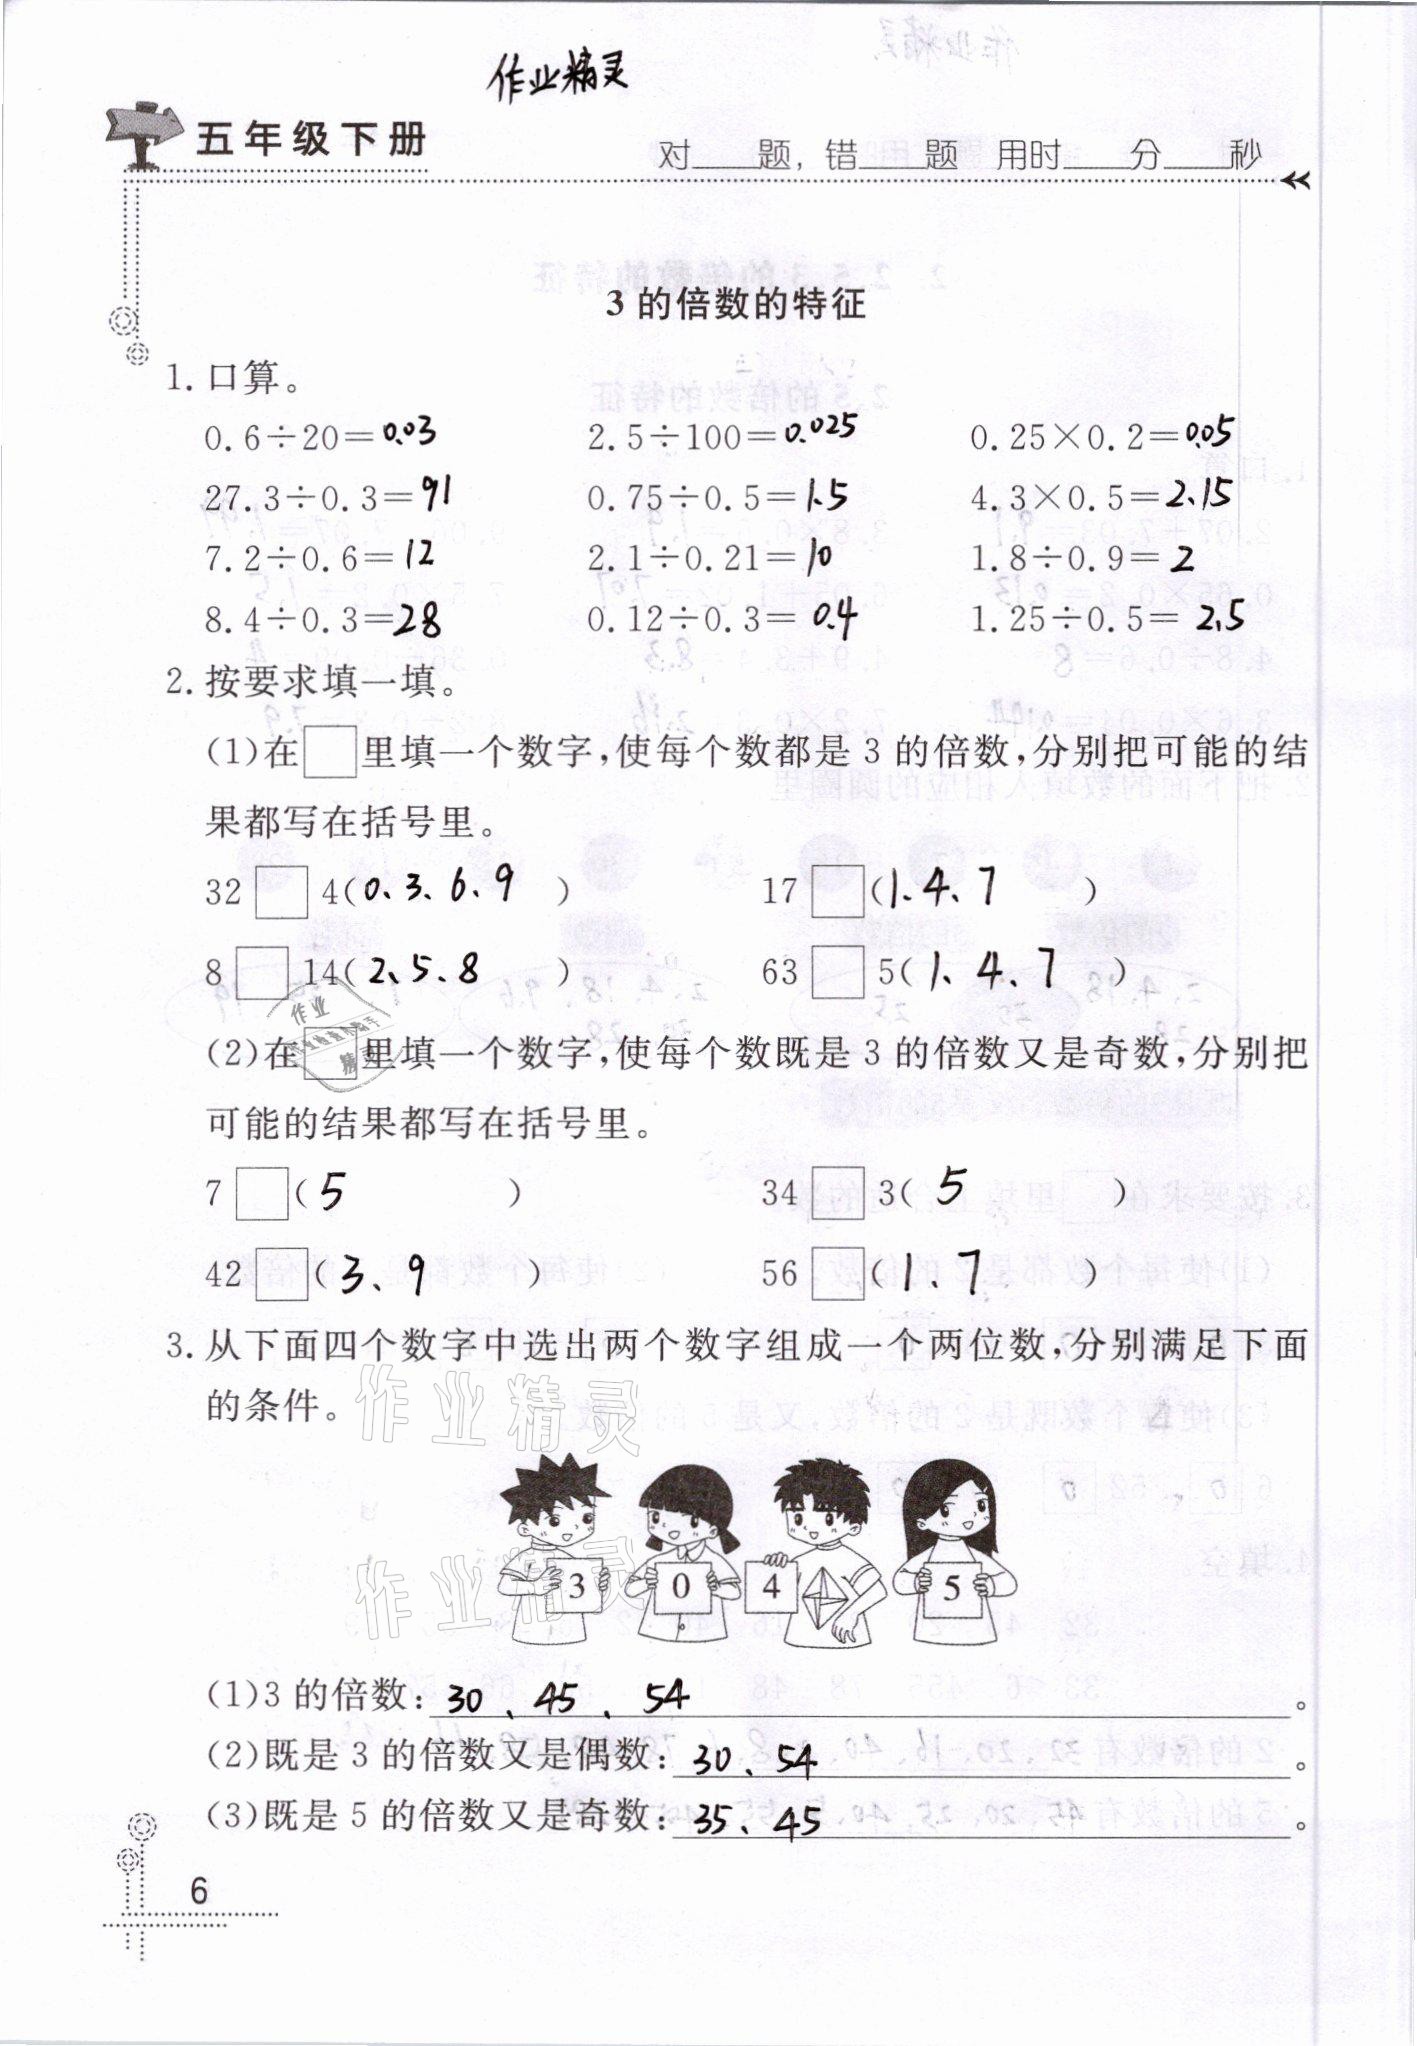 作业精灵
五年级下册
对____题，错____题 用时____分____秒
3 的倍数的特征
1. 口算。
0.6÷20=0.03 2.5÷100=0.025 0.25×0.2=0.05
27.3÷0.3=91 0.75÷0.5=1.5 4.3×0.5=2.15
7.2÷0.6=12 2.1÷0.21=10 1.8÷0.9=2
8.4÷0.3=28 0.12÷0.3=0.4 1.25÷0.5=2.5
2. 按要求填一填。
(1)在□里填一个数字,使每个数都是 3 的倍数,分别把可能的结
果都写在括号里。
32□4(0、3、6、9) 17□(1、4、7)
8□14(2、5、8) 63□5(1、4、7)
(2)在□里填一个数字,使每个数既是 3 的倍数又是奇数,分别把
可能的结果都写在括号里。
7□(5) 34□3(5)
42□(3、9) 56□(1、7)
3. 从下面四个数字中选出两个数字组成一个两位数,分别满足下面
的条件。
作业精灵
作业精灵
3 0 4 5
(1)3 的倍数:30、45、54。
(2)既是 3 的倍数又是偶数:30、54。
(3)既是 5 的倍数又是奇数:35、45。
6